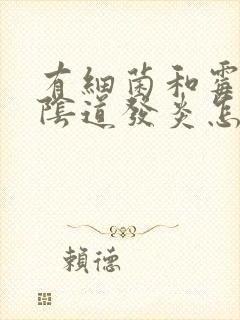 有細菌和霉
陰道發炎怎
賴德